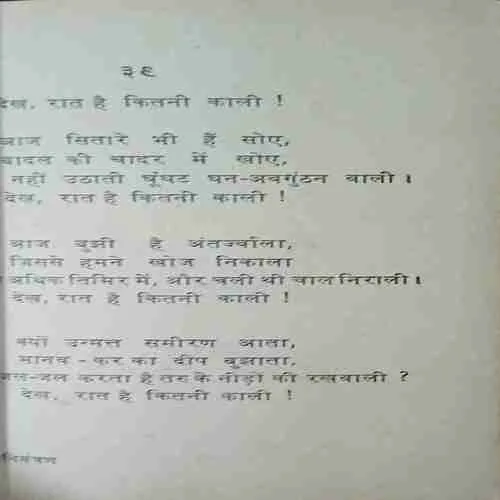 ३९
देख, रात है कितनी काली !
आज सितारे भी हैं सोए,
बादल की चादर में खोए,
नहीं उठाती घूंघट घन-अवगुंठन वाली ।
देख, रात है कितनी काली !
आज बुझी है अंतर्ज्वाला,
जिससे हमने खोज निकाला
अधिक तिमिर में, और चली थी चाल निराली ।
देख, रात है कितनी काली !
क्यों उन्मत्त समीरण आता,
मानव-कर का दीप बुझाता,
करता है तरु के नीड़ों की रखवाली ?
देख, रात है कितनी काली !